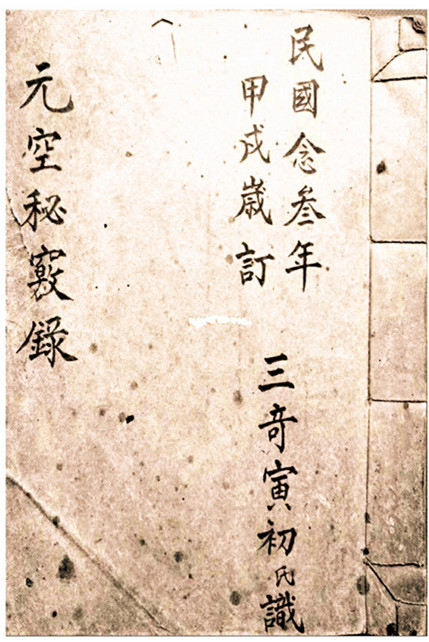 民國念叁年
甲戌歳訂
三奇寅初氏識
元空秘竅錄